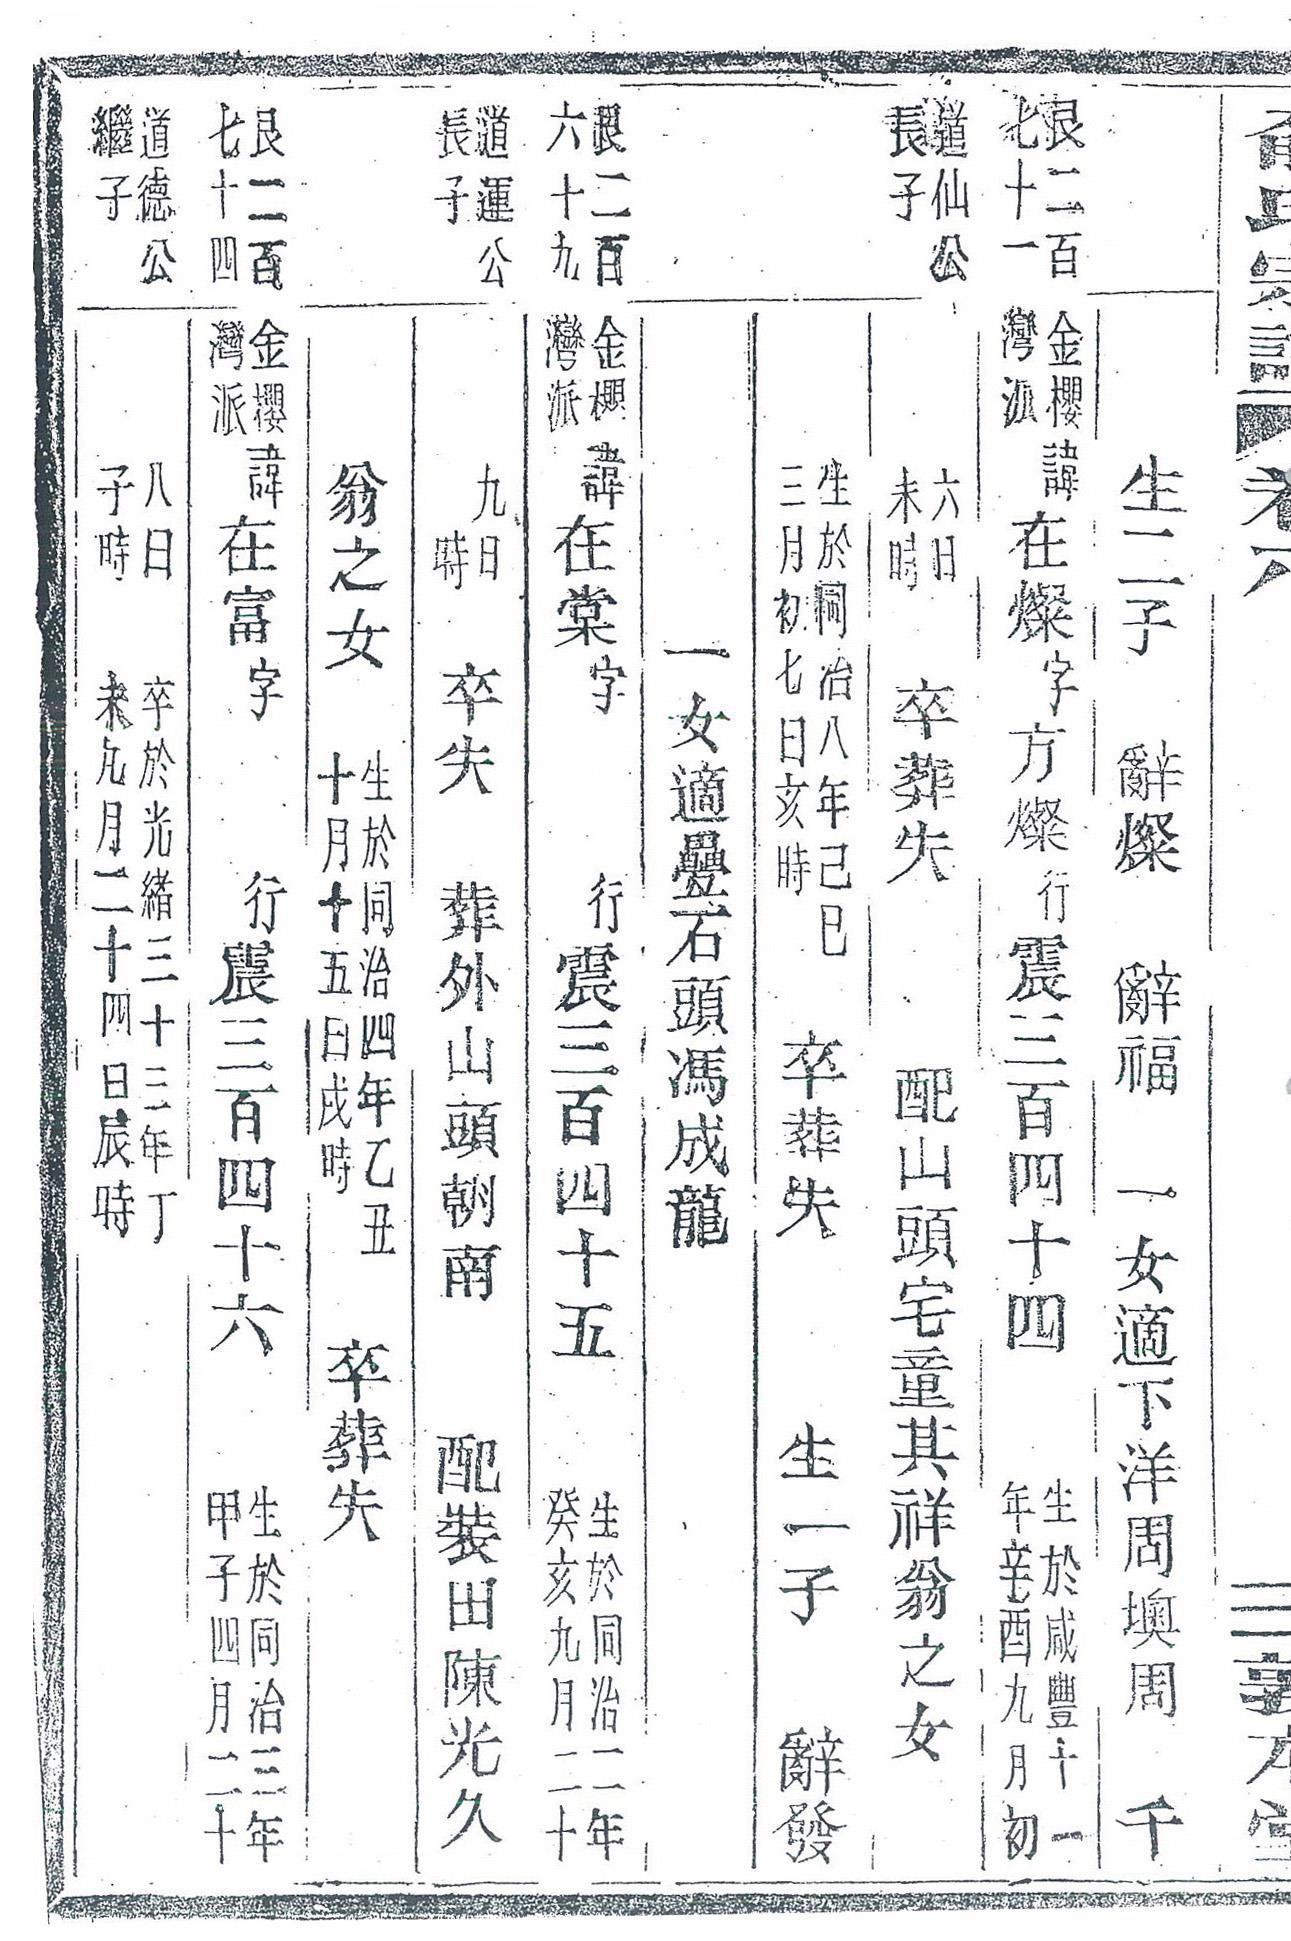 氏宗譜 卷六 三 敦本堂
生二子 辭燦 辭福 一女適下洋周墺周 千
艮二百
七十一
金櫻
灣派
諱在燦字方燦行震三百四十四
生於咸豐十一
年辛酉九月初
道仙公
長子
六日
未時
卒葬失 配山頭宅童其祥翁之女
生於同治八年己巳
三月初七日亥時
卒葬失 生一子 辭發
一女適疊石頭馮成龍
艮二百
六十九
金櫻
灣派
諱在棠字 行震三百四十五
生於同治二年
癸亥九月二十
道運公
長子
九日
時
卒失 葬外山頭朝南 配裝田陳光久
翁之女
生於同治四年乙丑
十月十五日戌時
卒葬失
艮二百
七十四
金櫻
灣派
諱在富字 行震三百四十六
生於同治三年
甲子四月二十
道德公
繼子
八日
子時
卒於光緒三十三年丁
未九月二十四日辰時